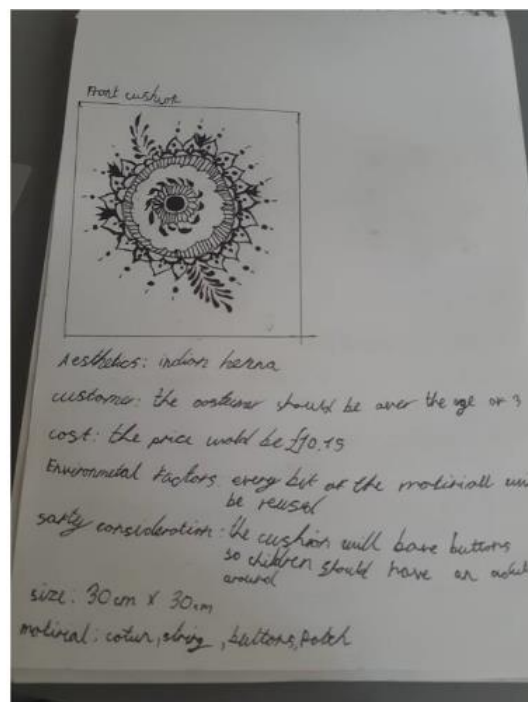 Front cushion
Aesthetics: indian henna
customer: the costumer should be over the age or 3
cost: the price wold be £10.15
Environmetal Factors: every bit of the motiriall
be reused
safty consideration: the cushion will bave buttons
so children should have an
around
size: 30cm x 30cm
motireal: cotun, string, buttons, Patch